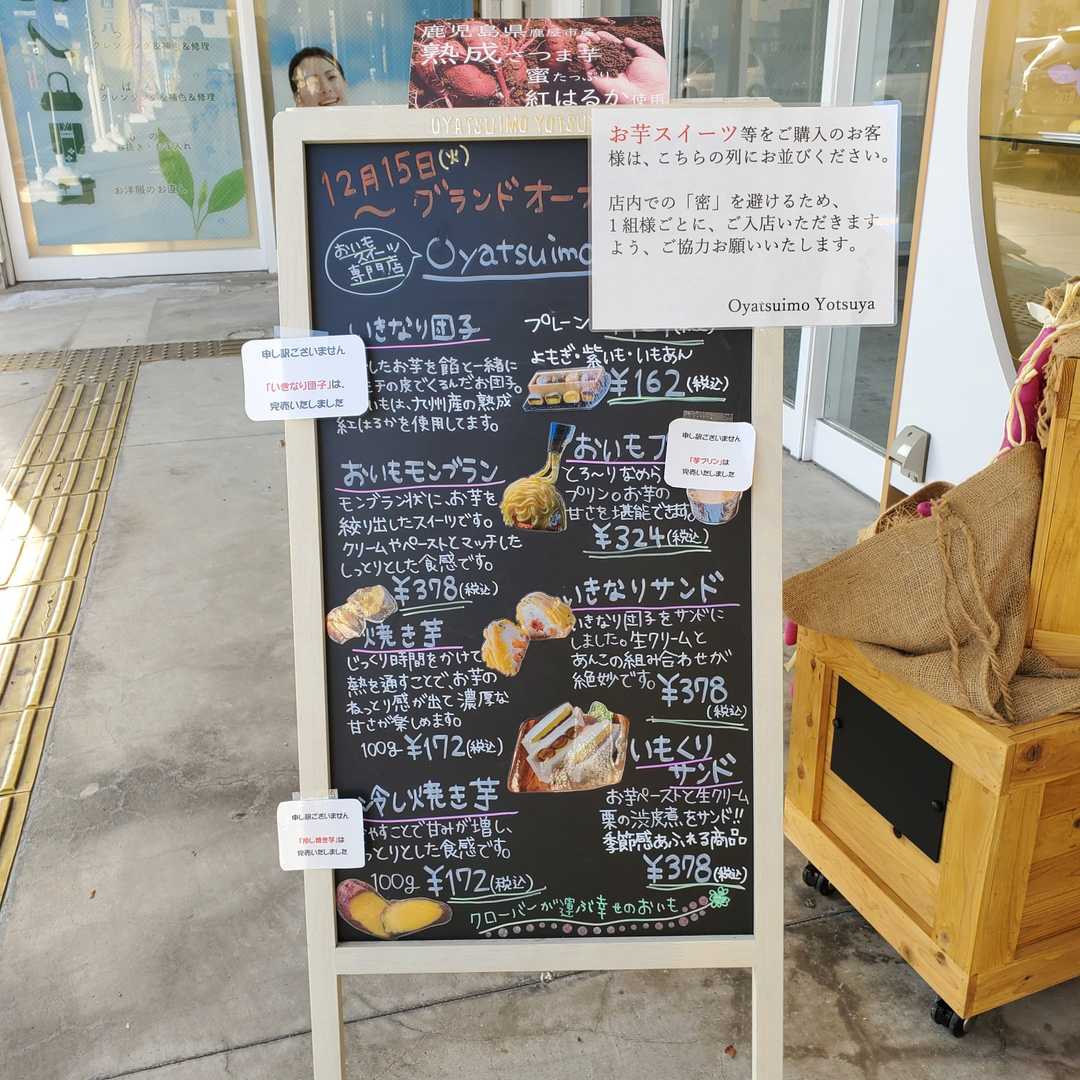 鹿児島県鹿屋市産
熟成さつま芋
蜜たっぷり
紅はるか使用
OYATSUIMO YOTSU
お芋スイーツ等をご購入のお客
様は、こちらの列にお並びください。
店内での「密」を避けるため、
1組様ごとに、ご入店いただきます
よう、ご協力お願いいたします。
Oyatsuimo Yotsuya
12月15日(火)
〜グランドオー
おいも
スイーツ
専門店
Oyatsuimo
いきなり団子
プレーン
よもぎ・紫いも・いもあん
¥162(税込)
したお芋を餡と一緒に
モチの皮でくるんだお団子。
いもは、九州産の熟成
紅はるかを使用してます。
申し訳ございません
「いきなり団子」は、
完売いたしました
おいもモンブラン
モンブラン状に、お芋を
絞り出したスイーツです。
クリームやペーストとマッチした
しっとりとした食感です。
¥378(税込)
おいもプ
とろ〜りなめら
プリン。お芋の
甘さを堪能できます。
¥324(税込)
申し訳ございません
「芋プリン」は
完売いたしました
焼き芋
じっくり時間をかけて
熱を通すことでお芋の
ねっとり感が出て濃厚な
甘さが楽しめます。
100g ¥172(税込)
いきなりサンド
いきなり団子をサンドに
しました。生クリームと
あんこの組み合わせが
絶妙です。
¥378
(税込)
冷し焼き芋
やすことで甘みが増し、
っとりとした食感です。
100g ¥172(税込)
申し訳ございません
「冷し焼き芋」は
完売いたしました
いもくり
サンド
お芋ペーストと生クリーム
栗の渋皮煮をサンド!!
季節感あふれる商品
¥378(税込)
クローバーが運ぶ幸せのおいも
クレンジング&補色&修理
かばん
クレンジング&補色&修理
お洋服のお直し